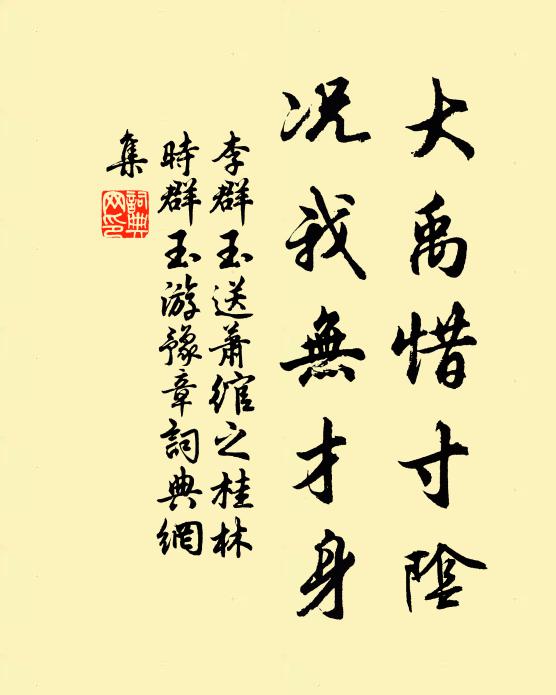 大禹惜寸陰
況我無才身
李群玉送蕭綰之桂林
時群玉游豫章詞典網
集
詞典
网印